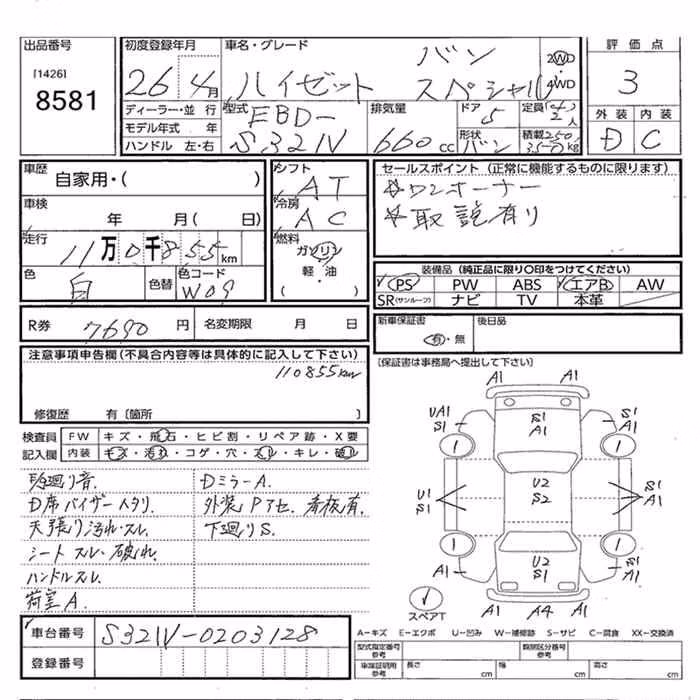 出品番号 初度登録年月 車名・グレード 評価点
[1426] 8581
26年4月 ハイゼット バン スペシャル 2WD 4WD 3
ディーラー・並行 型式 EBD-S321V 排気量 660cc ドア 5 定員 4/2人
モデル年式 年 形状 バン 積載 250/350kg
ハンドル 左・右 外装 D 内装 C
車歴 自家用・( ) シフト AT
車検 年 月(日) 冷房 AC
走行 11万0千855km 燃料 ガソリン 軽・油
色 白 色替 色コード W09
セールスポイント (正常に機能するものに限ります)
☆ワンオーナー
☆取説有り
装備品 (純正品に限り〇印をつけてください)
PS PW ABS エアB AW
SR(サンルーフ) ナビ TV 本革
R券 7690円 名変期限 月 日
新車保証書 有・無 後日品
[保証書は事務局へ提出して下さい]
注意事項申告欄(不具合内容等は具体的に記入して下さい)
110855km
修復歴 有〔箇所 〕
検査員 FW キズ・飛石・ヒビ割・リペア跡・X要
記入欄 内装 キズ・汚れ・コゲ・穴・スレ・キレ・破れ
DミラーA.
D席バイザーヘタリ 外装Pアセ、看板有.
天張り汚れ・スレ. 下廻りS.
シートスレ・破れ.
ハンドルスレ.
荷室A.
A1 A1
UA1 S1 S1 A1 S1 A1
U1 S1 U2 S2 S1 A1
A1 U2 S1 S1 A1
A1 A4 A1
スペアT
A-キズ E-エクボ U-凹み W-補修跡 S-サビ C-腐食 XX-交換済
車台番号 S321V-0203128
登録番号
型式指定番号 参考 類別区分番号 参考
車庫証明用 参考 長さ cm 幅 cm 高さ cm